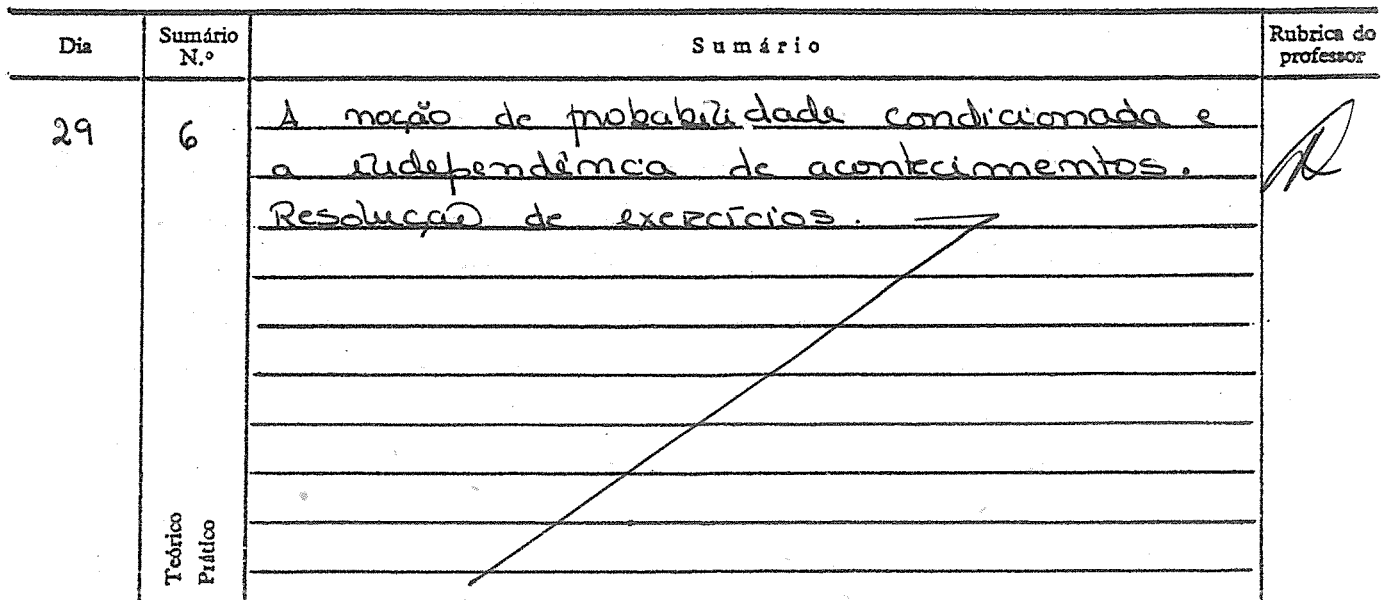 Dia
Sumário N.º
Sumário
Rubrica do professor
29
6
A noção de probabilidade condicionada e
a independência de acontecimentos.
Resolução de exercícios.
Teórico
Prático